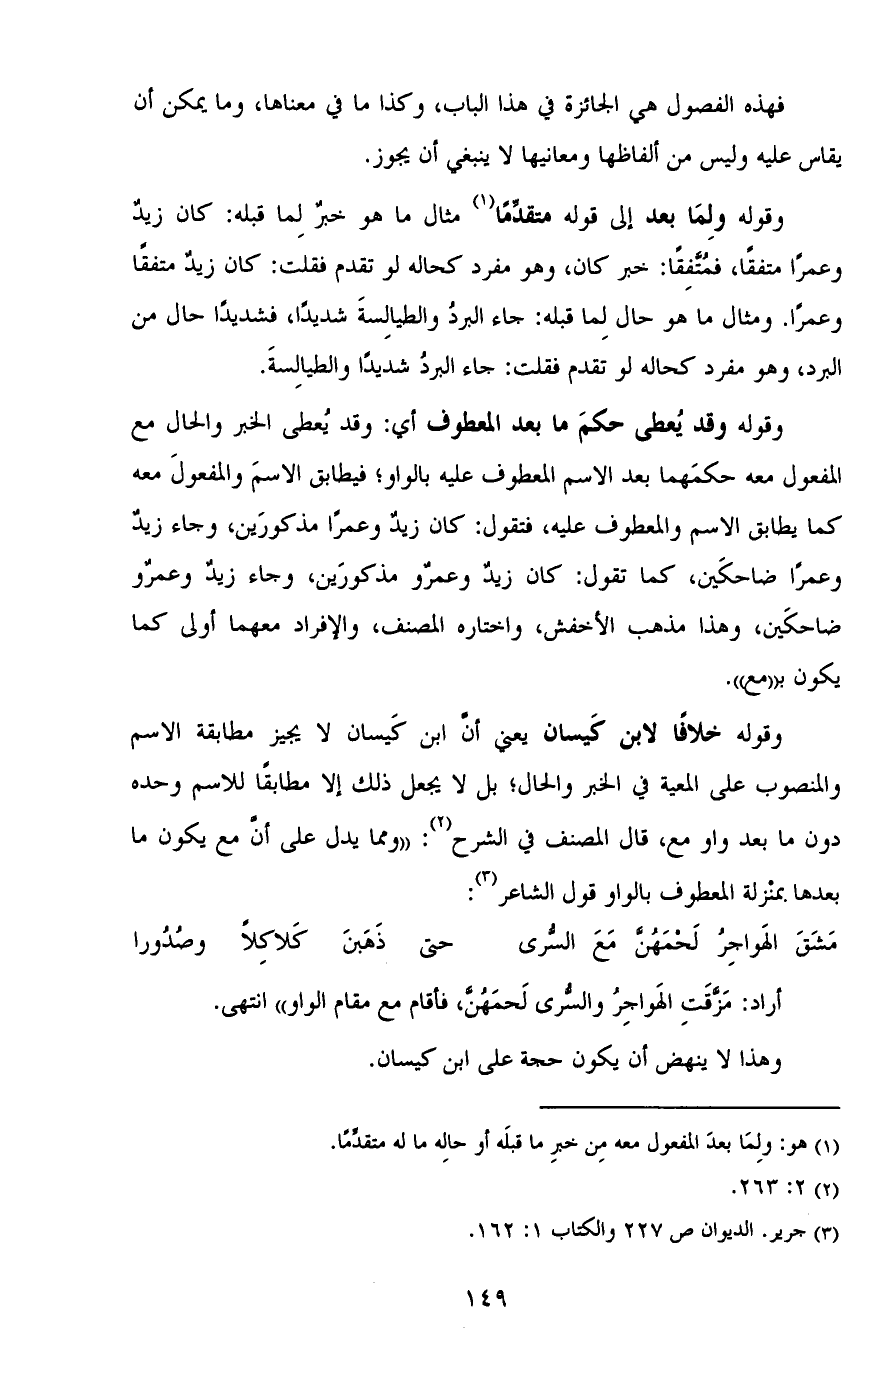 فهذه الفصول هي الجائزة في هذا الباب، وكذا ما في معناها، وما يمكن أن
يقاس عليه وليس من ألفاظها ومعانيها لا ينبغي أن يجوز.
وقوله ولِمَا بعد إلى قوله متقدِّمًا(١) مثال ما هو خبرٌ لِما قبله: كان زيدٌ
وعمرًا متفقًا، فمُتَّفِقًا: خبر كان، وهو مفرد كحاله لو تقدم فقلت: كان زيدٌ متفقًا
وعمرًا. ومثال ما هو حال لِما قبله: جاء البردُ والطيالِسةَ شديدًا، فشديدًا حال من
البرد، وهو مفرد كحاله لو تقدم فقلت: جاء البردُ شديدًا والطيالِسةَ.
وقوله وقد يُعطى حكمَ ما بعد المعطوف أي: وقد يُعطى الخبر والحال مع
المفعول معه حكمَهما بعد الاسم المعطوف عليه بالواو؛ فيطابق الاسمَ والمفعولَ معه
كما يطابق الاسم والمعطوف عليه، فتقول: كان زيدٌ وعمرًا مذكورَين، وجاء زيدٌ
وعمرًا ضاحكَين، كما تقول: كان زيدٌ وعمرٌو مذكورَين، وجاء زيدٌ وعمرٌو
ضاحكَين، وهذا مذهب الأخفش، واختاره المصنف، والإفراد معهما أولى كما
يكون بـ«مع».
وقوله خلافًا لابن كَيسان يعني أنَّ ابن كَيسان لا يجيز مطابقة الاسم
والمنصوب على المعية في الخبر والحال؛ بل لا يجعل ذلك إلا مطابقًا للاسم وحده
دون ما بعد واو مع، قال المصنف في الشرح(٢): «ومما يدل على أنَّ مع يكون ما
بعدها بمنْزلة المعطوف بالواو قول الشاعر(٣):
مَشَقَ الهَواجِرُ لَحْمَهُنَّ مَعَ السُّرى حتى ذَهَبنَ كَلاكِلاً وصُدُورا
أراد: مَزَّقَتِ الهَواجِرُ والسُّرى لَحمَهُنَّ، فأقام مع مقام الواو» انتهى.
وهذا لا ينهض أن يكون حجة على ابن كيسان.
(١) هو: ولِمَا بعدَ المفعول معه مِن خبرِ ما قبلَه أو حالِه ما له متقدِّمًا.
(٢) ٢: ٢٦٣.
(٣) جرير. الديوان ص ٢٢٧ والكتاب ١: ١٦٢.
١٤٩